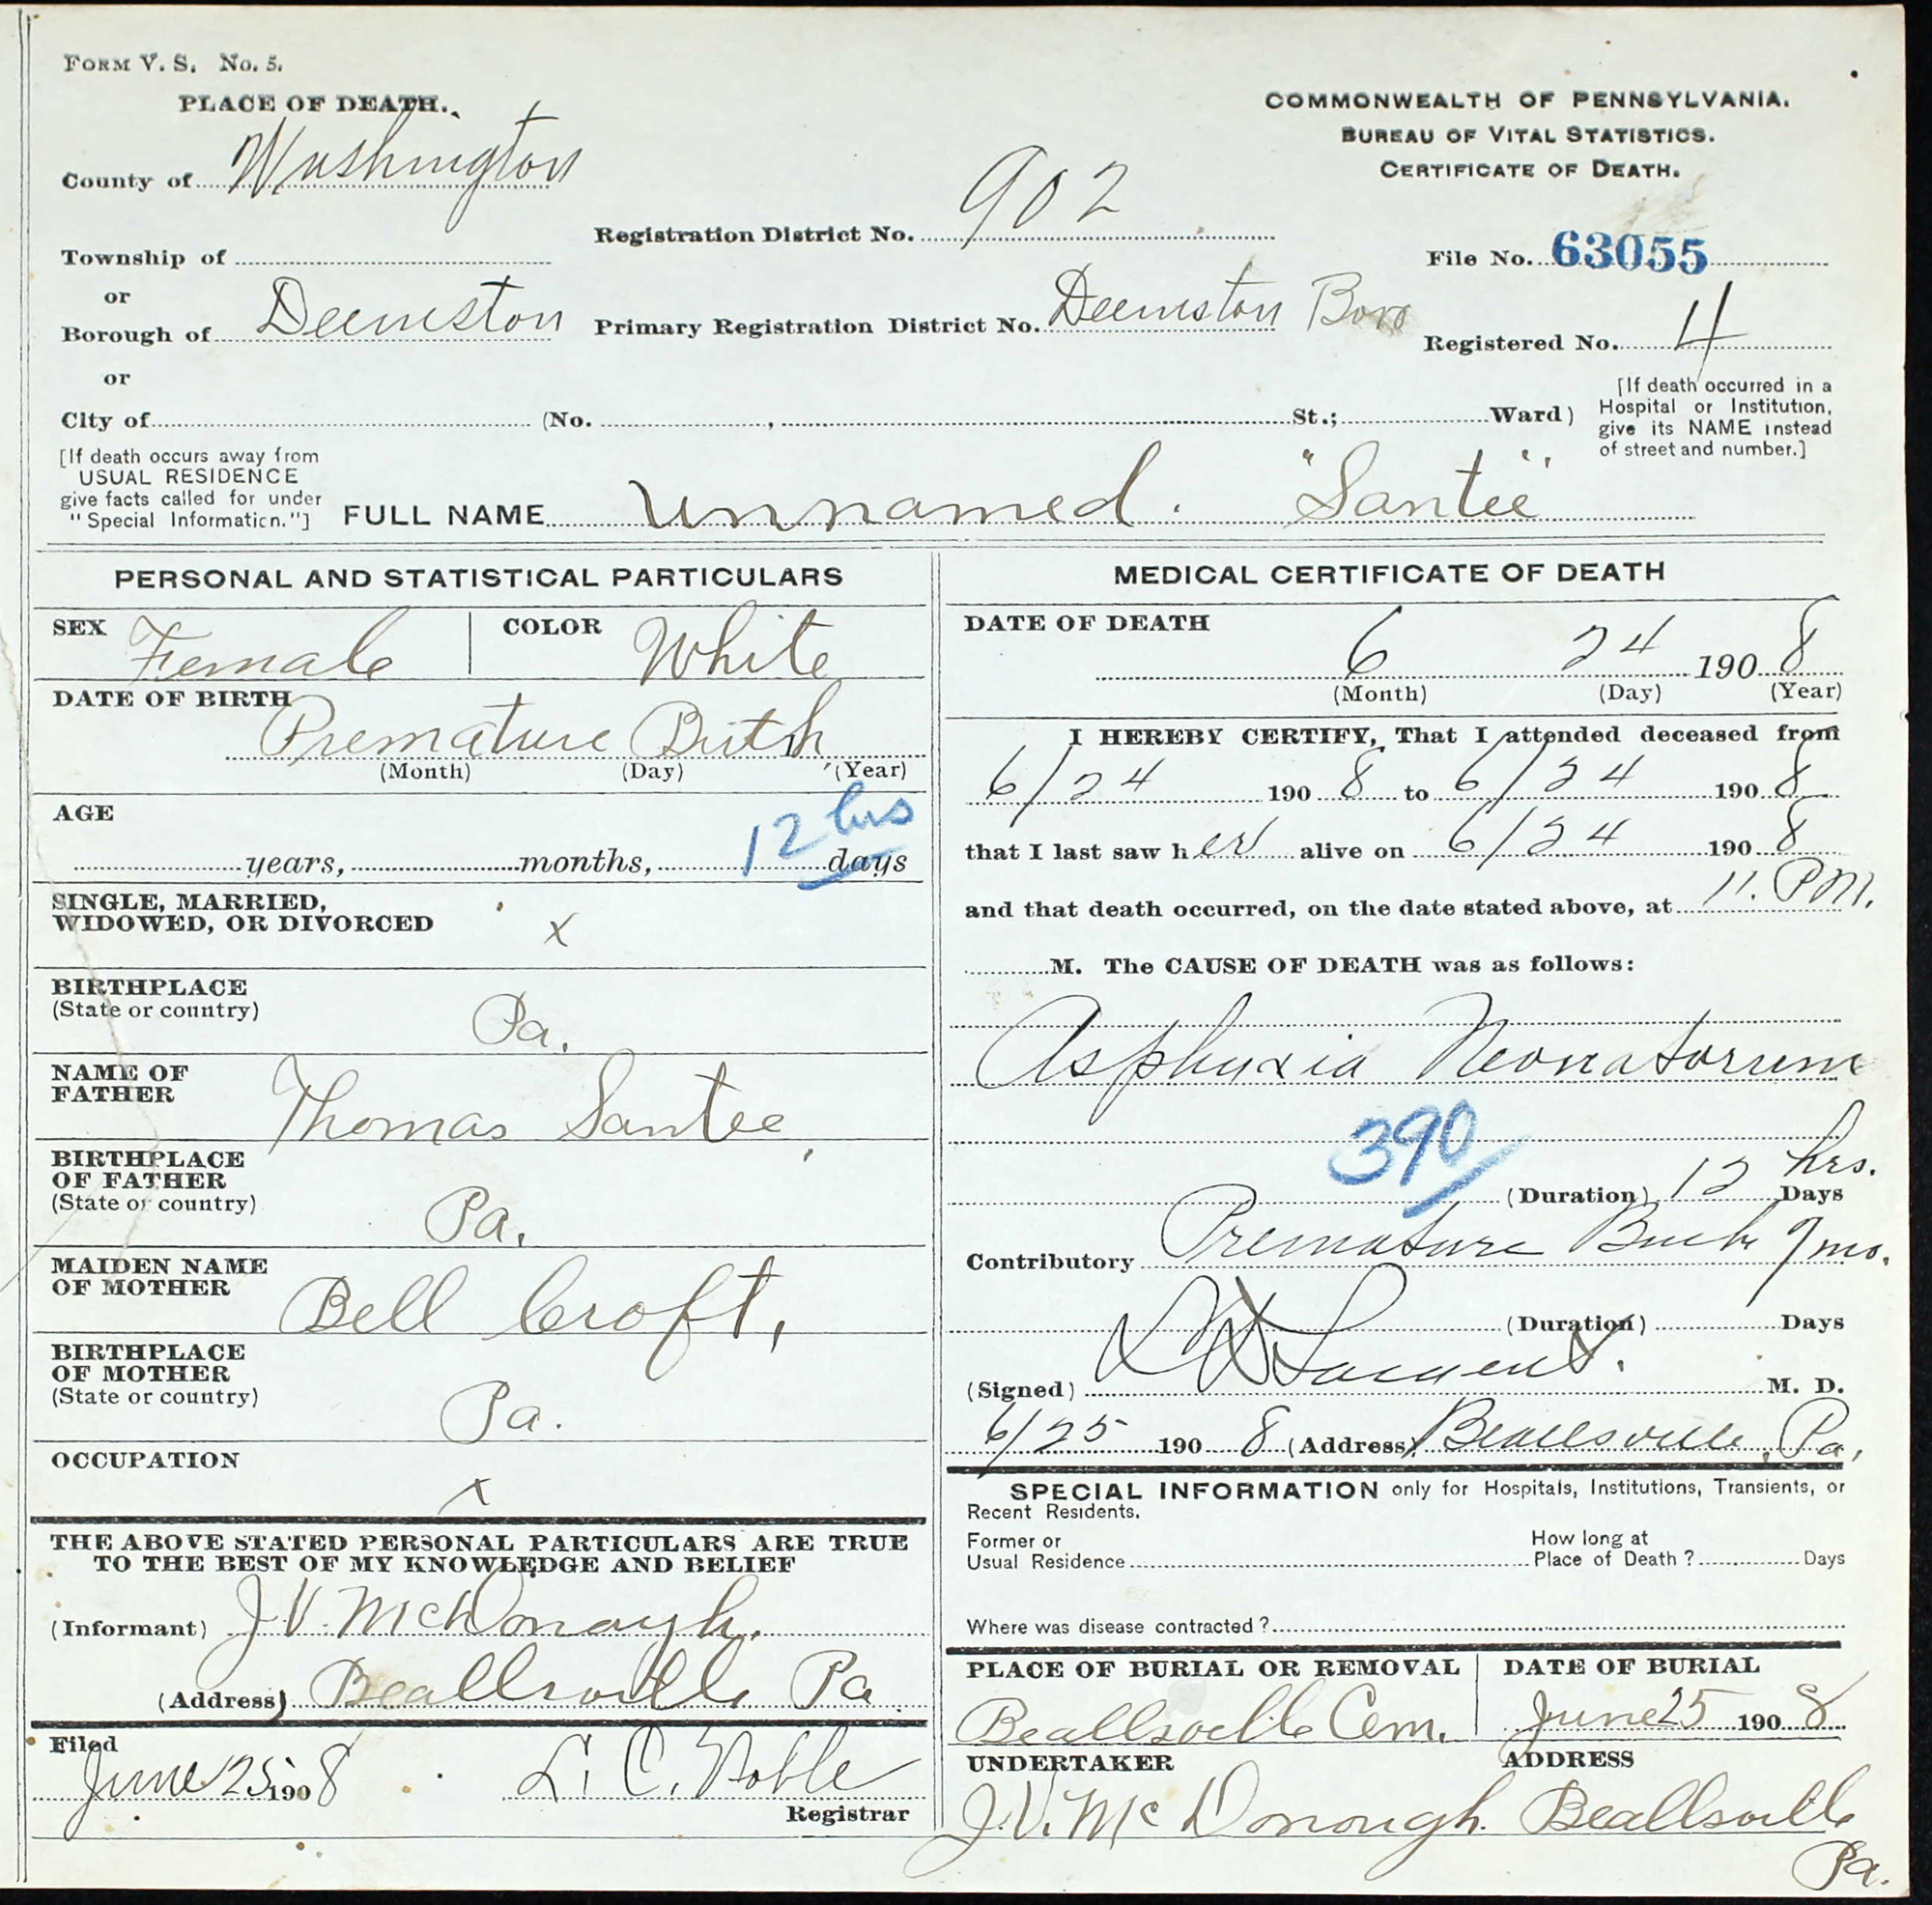 FORM V. S. No. 5.
PLACE OF DEATH.
COMMONWEALTH OF PENNSYLVANIA.
BUREAU OF VITAL STATISTICS.
CERTIFICATE OF DEATH.
County of Washington
Registration District No. 902
Township of
File No. 63055
or
Borough of Deemston
Primary Registration District No. Deemston Boro
Registered No. 4
or
City of (No. , St.; Ward)
[If death occurred in a
Hospital or Institution,
give its NAME instead
of street and number.]
[If death occurs away from
USUAL RESIDENCE
give facts called for under
"Special Information."]
FULL NAME unnamed. "Santee"
PERSONAL AND STATISTICAL PARTICULARS
SEX Female
COLOR White
DATE OF BIRTH
Premature Birth
(Month) (Day) (Year)
AGE
12 hrs
years, months, days
SINGLE, MARRIED,
WIDOWED, OR DIVORCED x
BIRTHPLACE
(State or country) Pa.
NAME OF
FATHER Thomas Santee,
BIRTHPLACE
OF FATHER
(State or country) Pa.
MAIDEN NAME
OF MOTHER Bell Croft,
BIRTHPLACE
OF MOTHER
(State or country) Pa.
OCCUPATION
x
THE ABOVE STATED PERSONAL PARTICULARS ARE TRUE
TO THE BEST OF MY KNOWLEDGE AND BELIEF
(Informant) J. V. McDonough.
(Address) Beallsville Pa
Filed
June 25 1908 L. C. Noble
Registrar
MEDICAL CERTIFICATE OF DEATH
DATE OF DEATH
6 24 1908
(Month) (Day) (Year)
I HEREBY CERTIFY, That I attended deceased from
6/24 1908 to 6/24 1908
that I last saw her alive on 6/24 1908
and that death occurred, on the date stated above, at 11. PM.
M. The CAUSE OF DEATH was as follows:
Asphyxia Neonatorum
390
(Duration) 12 hrs. Days
Contributory Premature Birth 7 mo.
(Duration) Days
(Signed) M. D.
6/25 1908 (Address) Beallsville, Pa,
SPECIAL INFORMATION only for Hospitals, Institutions, Transients, or
Recent Residents.
Former or
Usual Residence
How long at
Place of Death? Days
Where was disease contracted?
PLACE OF BURIAL OR REMOVAL
Beallsville Cem.
DATE OF BURIAL
June 25 1908
UNDERTAKER
J. V. McDonough.
ADDRESS
Beallsville
Pa.